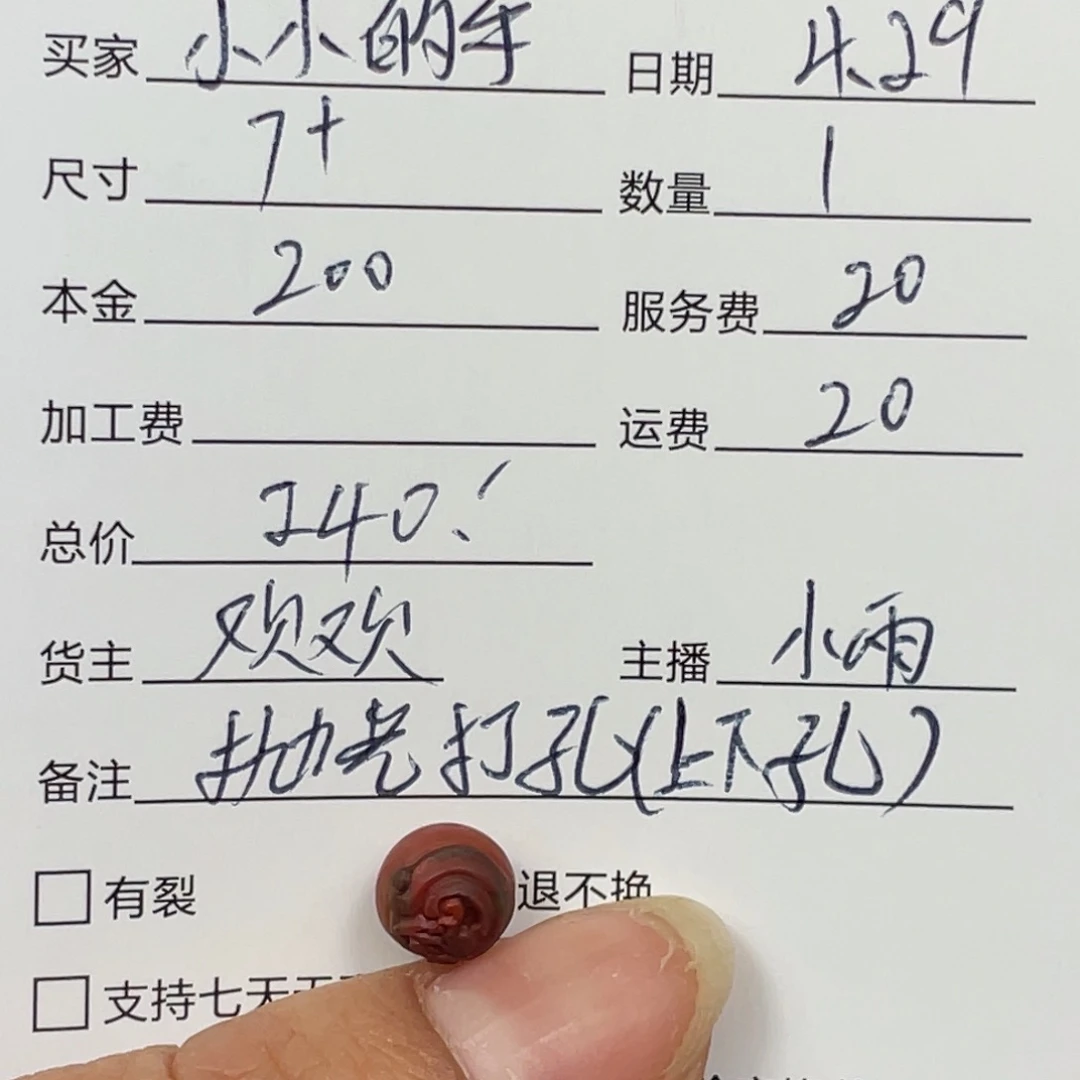 买家 小小的年 日期 4.29
尺寸 7+ 数量 1
本金 200 服务费 20
加工费 运费 20
总价 240.
货主 欢欢 主播 小雨
备注 抛光打孔(上下孔)
有裂 退不换
支持七天